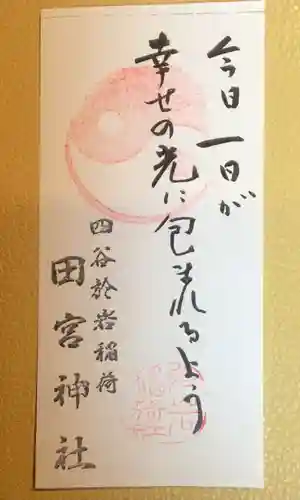 今日一日が
幸せの光に包まれるよう
四谷於岩稲荷
田宮神社